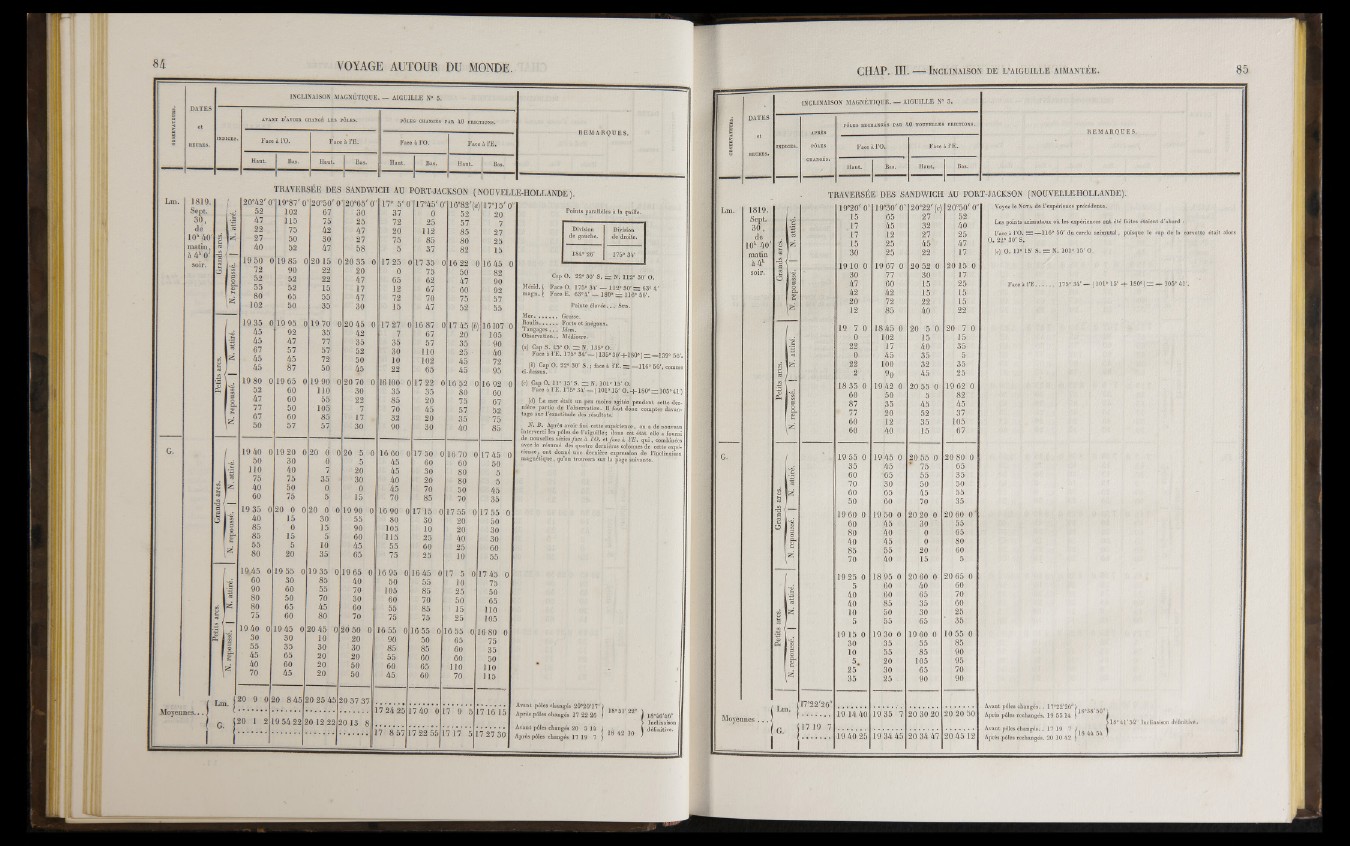 84 VOYAGE AUTOUR DU MONDE.
INCLINAISON MAGNÉTIQUE. — AIGUILLE N° 5.
OBSERVATEURS.
DATES et HEURES.
INDICES.
AVANT D'AVOIR CHANGÉ LES PÔLES.
PÔLES CHANGÉS PAR 40 FRICTIONS.
REMARQUES.
Face à l'O. Face à l'E. Face à l'O. Face à l'E.
Haut. Bas. Haut. Bas. Haut. Bas. Haut. Bas.
TRAVERSÉE DES SANDWICH AU PORT-JACKSON (NOUVELLE-HOLLANDE).
Lm.
1819.
Sept.
30,
de
10h 40'
matin,
à 4h 0'
soir.
Grands arcs.
N. attiré.
20°42' 0" 19°87' 0" 20°50' 0" 20°65' 0" 17° 5' 0" 17°45' 0" 16°82' 17°15' 0"
52 102 67 30 37 0 52 20
47 115 75 25 72 25 57 7
22 75 42 47 20 112 85 27
27 50 30 27 75 85 80 25
40 52 47 58 5 37 82 15
N. repoussé.
19 50 0 19 85 0 20 15 0 20 35 0 17 25 0 17 35 0 16 22 0 16 45 0
72 90 22 20 0 75 50 82
52 52 22 47 65 62 47 90
55 52 15 17 12 67 60 92
80 65 55 47 72 70 75 57
102 50 35 30 15 47 52 55
Petits arcs.
N. attiré.
19 35 0 19 95 0 19 70 0 20 45 0 17 27 0 16 87 0 17 45 (b) 16 107 0
45 92 35 42 7 67 20 105
45 47 77 35 35 57 35 90
67 57 57 52 30 110 25 40
45 45 72 50 10 102 45 72
45 87 50 45 22 65 45 95
N. repoussé.
19 80 0 19 65 0 19 90 0 20 70 0 16 100 0 17 22 0 16 52 0 16 92 0
52 60 110 30 55 35 80 60
47 60 55 22 85 20 75 67
77 50 105 7 70 45 57 52
67 60 85 17 32 20 35 75
50 57 57 30 90 30 40 85
G.
Grands arcs.
N. attiré.
19 40 0 19 20 0 20 0 0 20 5 0 16 60 0 17 50 0 16 70 0 17 45 0
50 30 0 5 45 60 60 50
110 40 7 20 45 30 80 5
75 75 35 30 40 20 80 5
40 50 0 0 45 70 50 45
60 75 5 15 70 85 70 35
N. repoussé.
19 35 0 20 0 0 20 0 0 19 90 0 16 90 0 17 15 0 17 55 0 17 55 0
40 15 30 55 80 30 20 50
85 0 15 90 105 10 20 30
85 15 5 60 115 25 40 30
55 5 10 45 55 60 25 60
80 20 35 65 75 25 10 55
Petits arcs.
N. attiré.
19 45 0 19 55 0 19 35 0 19 65 0 16 95 0 16 45 0 17 5 0 17 45 0
60 30 85 40 50 55 10 75
90 60 55 70 105 85 25 50
80 50 70 30 60 70 50 65
80 65 45 60 55 85 15 110
75 60 80 70 75 75 25 105
N. repoussé.
19 40 0 19 45 0 20 45 0 20 50 0 16 55 0 16 55 0 16 55 0 16 80 0
30 30 10 20 90 50 65 75
55 35 30 30 85 85 60 35
45 65 20 20 55 60 60 50
40 60 20 50 60 65 110 110
70 45 20 50 45 60 70 115
Moyennes...
Lm. 20 9 0 20 8 45 20 25 45 20 37 37
17 24 25 17 40 0 17 9 5 17 16 15
G. 20 1 2 19 54 22 20 12 22 20 15 8
17 8 57 17 22 55 17 17 5 17 27 30
Points parallèles à la quille.
Division de gauche. Division de droite.
184° 26' 175° 34'
Cap O. 22° 30' S. = N. 112° 30' O.
Mérid. magn. Face O. 175° 34' — 112° 30' = 63° 4'
Face E. 63° 4' — 180° = 116° 56'.
Pointe élevée.... Sen.
Mer....... Grosse.
Roulis...... Forts et inégaux.
Tangages.... Idem.
Observation... Médiocre.
(a) Cap S. 45° O. = N. 135° O.
(b) Cap O. 22° 30' S.; face à l'E. = —116° 56', comme ci-dessus.
(c) Cap O. 11° 15' S. = N. 101° 15' O.
Face à l'E. 175° 34' — [101° 15' O. + 180° = 105° 41']
(d) La mer était un peu moins agitée pendant cette dernière partie de l'observation. Il faut donc compter davantage sur l'exactitude des résultats.
N. B. Après avoir fini cette expérience, on a de nouveau interverti les pôles de l'aiguille; dans cet état elle a fourni de nouvelles séries face à l'O. et face à l'E. qui, combinées avec le résumé des quatre dernières colonnes de cette expérience, ont donné une dernière expression de l'inclinaison magnétique, qu'on trouvera sur la page suivante.
Avant pôles changés 20°20'17"
Après pôles changés 17 22 26
18°51' 22"
Avant pôles changés 20 5 15
Après pôles changés 17 19 7
18 42 10
18°46'46" Inclinaison définitive.
CHAP. III. — INCLINAISON DE L'AIGUILLE AIMANTÉE. 85
INCLINAISON MAGNÉTIQUE. — AIGUILLE N° 5.
OBSERVATEURS.
DATES et HEURES.
INDICES.
APRÈS PÔLES CHANGÉS.
PÔLES RECHANGÉS PAR 40 NOUVELLES FRICTIONS.
REMARQUES.
Face à l'O. Face à l'E.
Haut. Bas. Haut. Bas.
TRAVERSÉE DES SANDWICH AU PORT-JACKSON (NOUVELLE-HOLLANDE).
Lm.
1819.
Sept.
30,
de
10h 40'
matin
à 4h
soir.
Grands arcs.
N. attiré.
19°20' 0" 19°30' 0" 20°22' (c) 20°50' 0"
15 65 27 52
17 45 32 40
17 12 27 25
15 25 45 47
30 25 22 17
N. repoussé.
19 10 0 19 07 0 20 52 0 20 15 0
30 77 30 17
47 60 15 25
42 42 15 15
20 72 22 15
12 85 40 22
Petits arcs.
N. attiré.
19 7 0 18 45 0 20 5 0 20 7 0
0 102 15 15
22 17 40 35
0 45 35 5
22 100 32 35
2 90 45 25
N. repoussé.
18 35 0 19 42 0 20 55 0 19 62 0
60 50 5 82
87 35 45 45
77 20 52 37
60 12 35 105
60 40 15 67
G.
Grands arcs.
N. attiré.
19 55 0 19 45 0 20 55 0 20 80 0
35 45 75 65
60 65 55 35
70 30 50 50
60 65 45 55
50 60 70 35
N. repoussé.
19 60 0 19 50 0 20 20 0 20 60 0
60 45 30 55
80 40 0 65
40 45 0 80
85 55 20 60
70 40 15 5
Petits arcs.
N. attiré.
19 25 0 18 95 0 20 60 0 20 65 0
5 60 40 60
40 60 65 70
40 85 35 60
10 50 30 25
5 55 65 35
N. repoussé.
19 15 0 19 30 0 19 60 0 19 55 0
30 35 55 85
10 55 85 90
5 20 105 95
25 30 65 70
35 25 90 90
Moyennes...
Lm. 17°22'26"
19 14 40 19 35 7 20 30 20 20 20 50
G. 17 19 7
19 40 25 19 34 45 20 34 47 20 45 12
Voyez le Nota de l'expérience précédente.
Les points azimutaux où les expériences ont été faites étaient d'abord:
Face à l'O. = —116° 56' du cercle azimutal, puisque le cap de la corvette était alors O. 22° 30' S.
(c) O. 11° 15' S. = N. 101° 15' O.
Face à l'E...... 175° 34' — [101° 15' + 180°] = — 105° 41'.
Avant pôles changés.. 17°22'26"
Après pôles rechangés. 19 55 14
18°38'50"
Avant pôles changés.. 17 19 7
Après pôles rechangés. 20 10 42
18 44 54
18°41' 52" Inclinaison définitive.